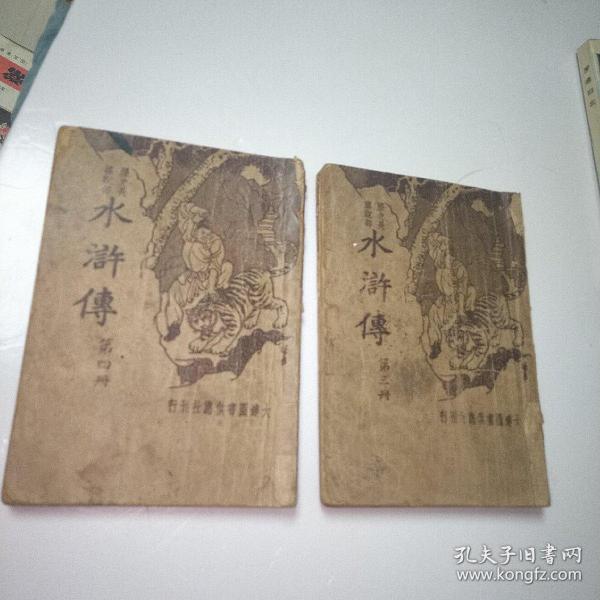 水滸傳
第四册
大達圖書供應社刊行
水滸傳
第三册
大達圖書供應社刊行
孔夫子旧书网
www.kongfz.com